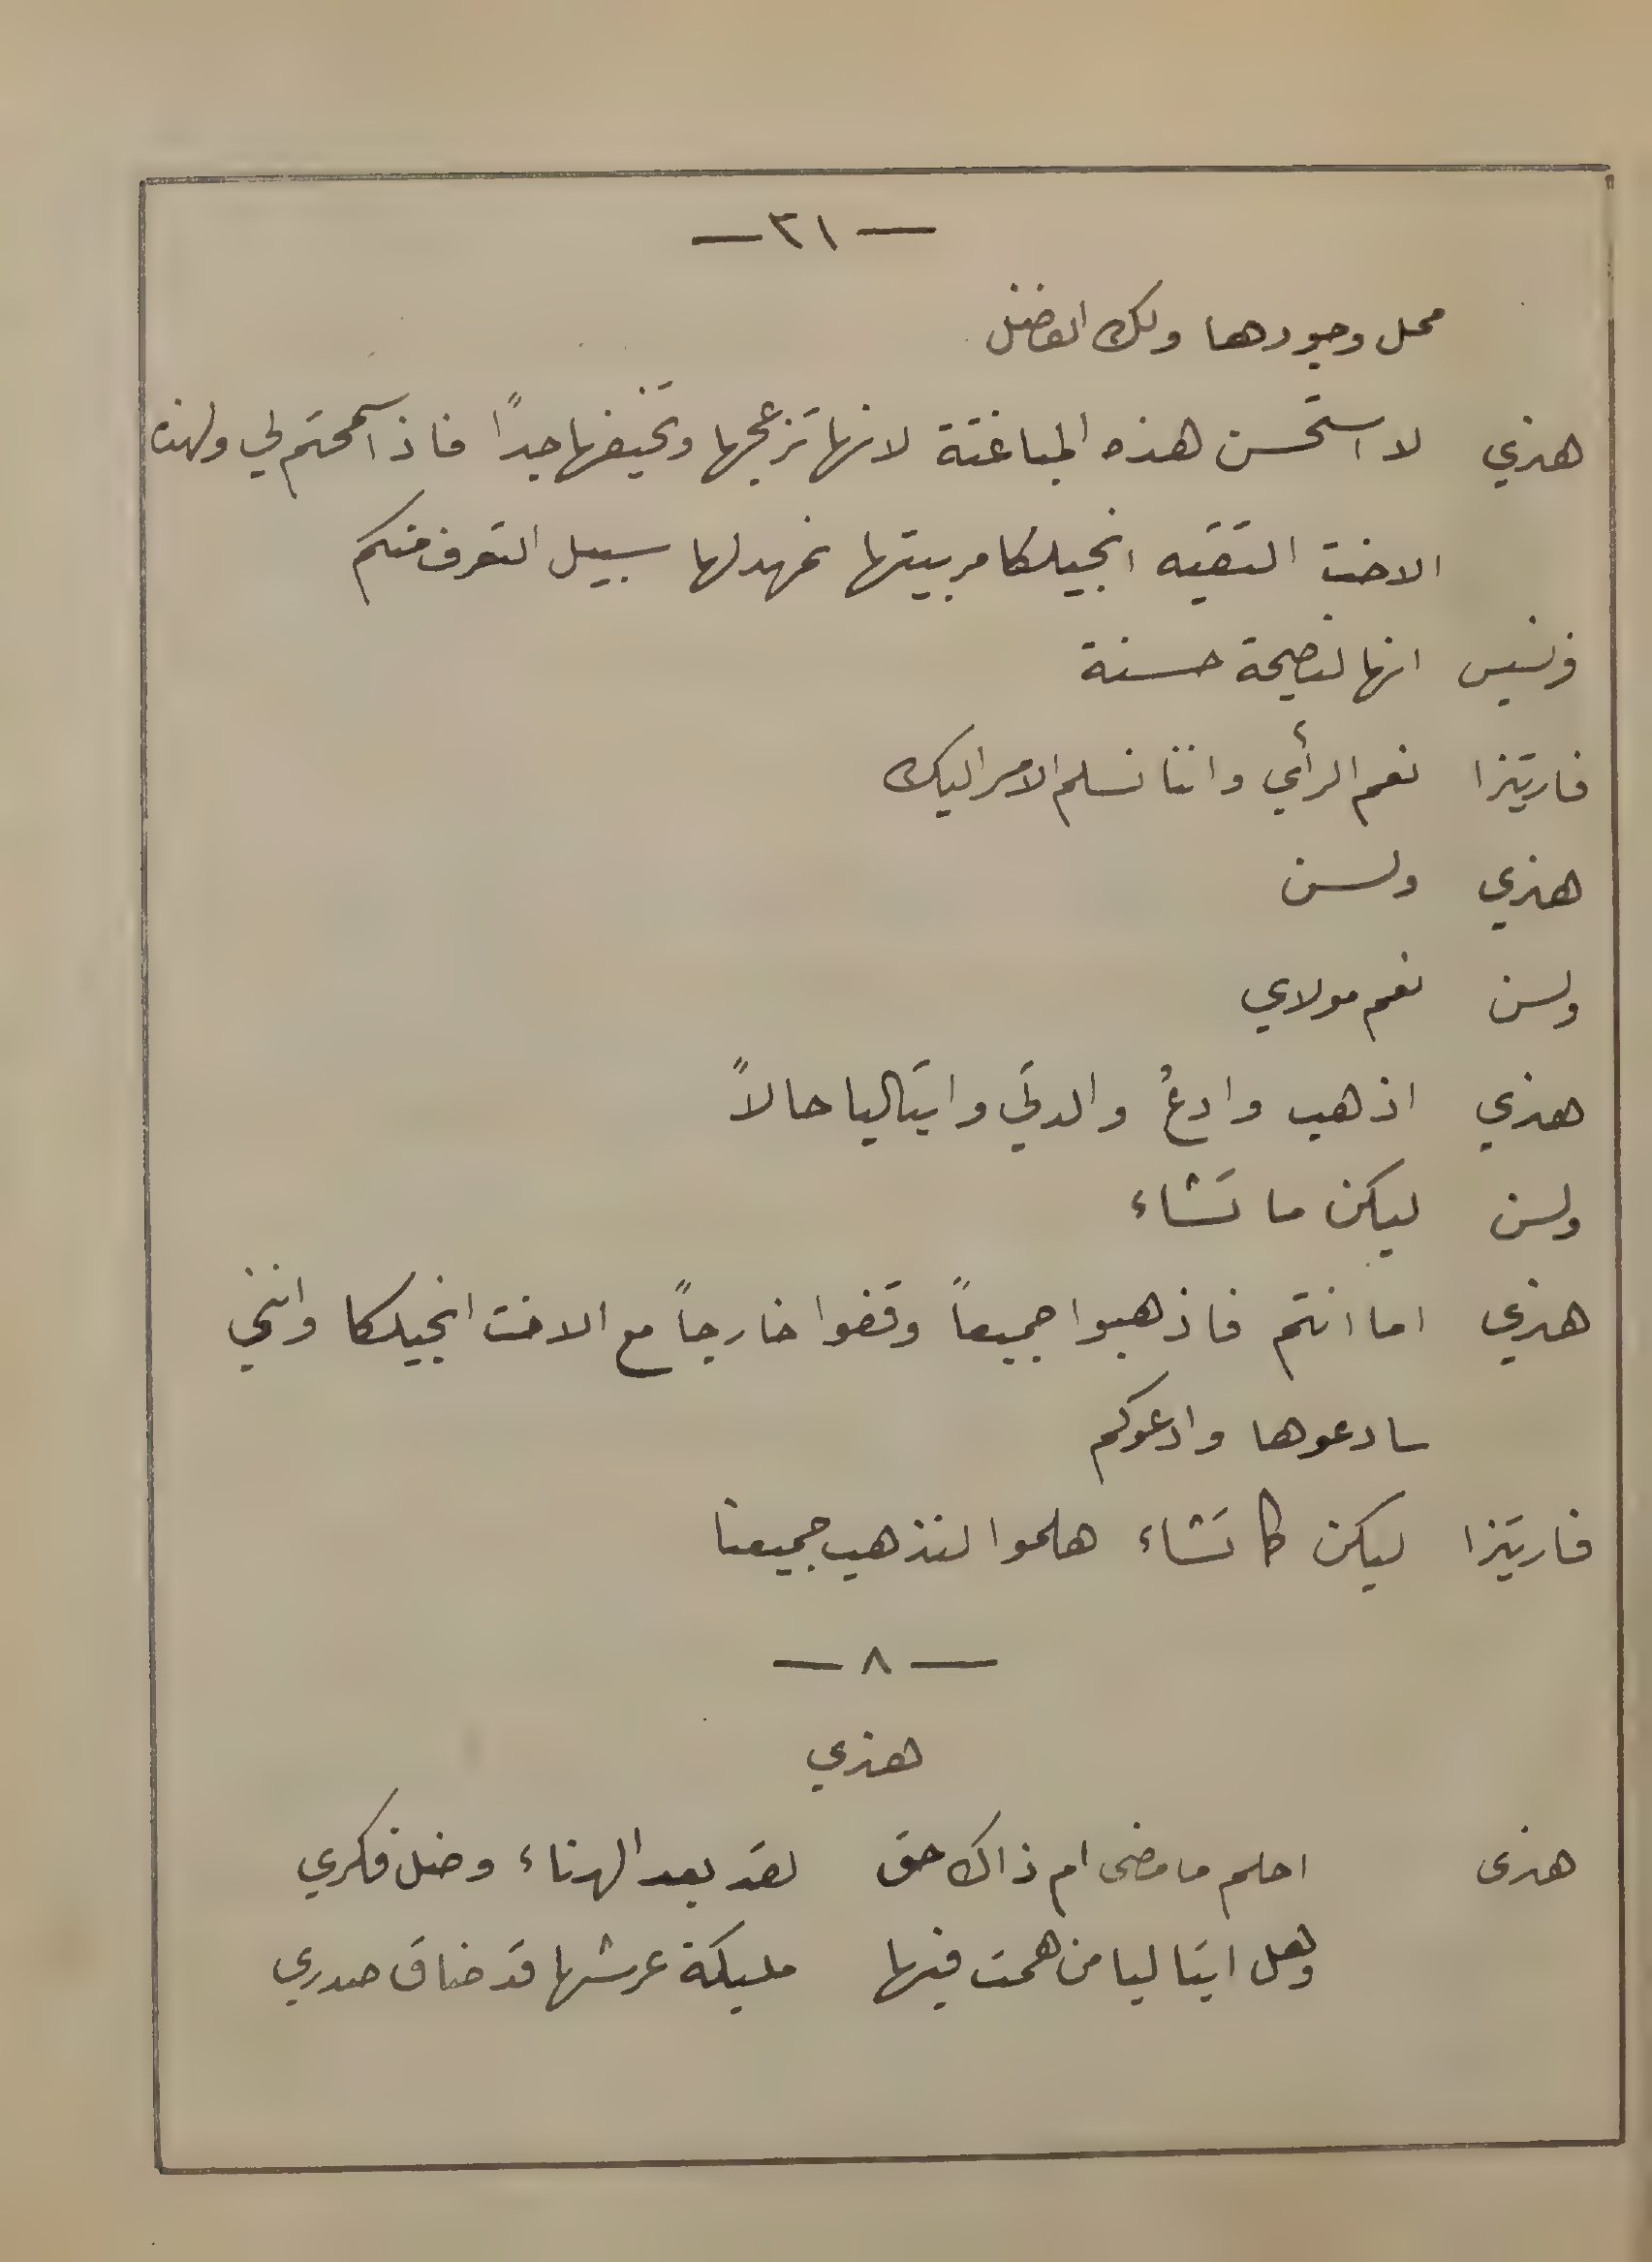 — ٣١ —
محل وجودها ولك الفضل
هنري لا استحسن هذه المباغتة لانها تزعجها وتخيفها جداً فاذا سمحتم لي ولهذه
الاخت التقيه انجيلكا مربيتها نمهد لها سبيل التعرف منكم
فرنسيس انها لنصيحة حسنة
فاريتزا نعم الرأي واننا نسلم الامر اليك
هنري ولسن
ولسن نعم مولاي
هنري اذهب وادعُ والدتي وايتاليا حالاً
ولسن ليكن ما تشاء
هنري اما انتم فاذهبوا جميعاً وقفوا خارجاً مع الاخت انجيلكا وانني
سادعوها وادعوكم
فاريتزا ليكن كما تشاء هلموا لنذهب جميعنا
— ٨ —
هنري
هنرى احلم ما مضى ام ذاك حق لقد بعد الهناء وضل فكري
وهل ايتاليا من همت فيها مليكة عرشها قد ضاق صدري